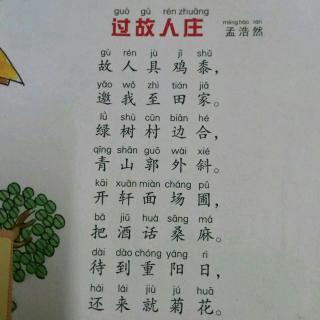 guò gù rén zhuāng
过故人庄
mèng hào rán
孟浩然
gù rén jù jī shǔ
故人具鸡黍，
yāo wǒ zhì tián jiā
邀我至田家。
lǜ shù cūn biān hé
绿树村边合，
qīng shān guō wài xié
青山郭外斜。
kāi xuān miàn cháng pǔ
开轩面场圃，
bǎ jiǔ huà sāng má
把酒话桑麻。
dài dào chóng yáng rì
待到重阳日，
hái lái jiù jú huā
还来就菊花。